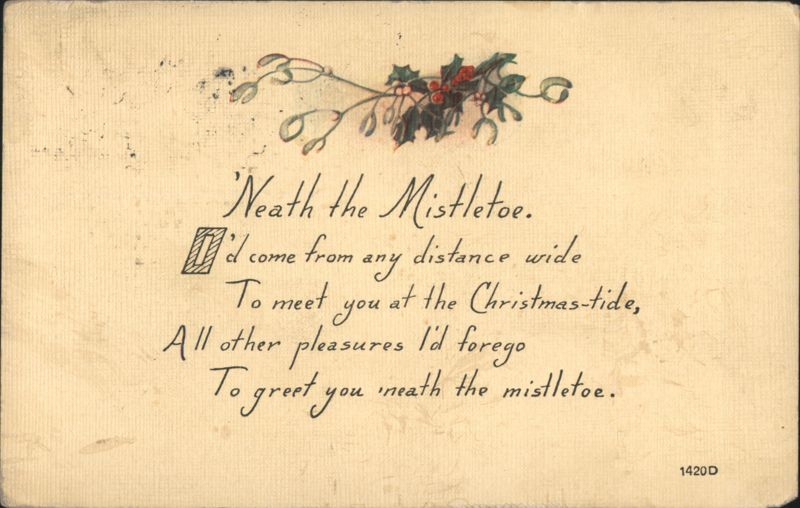 'Neath the Mistletoe.
I'd come from any distance wide
To meet you at the Christmas-tide,
All other pleasures I'd forego
To greet you 'neath the mistletoe.
1420D